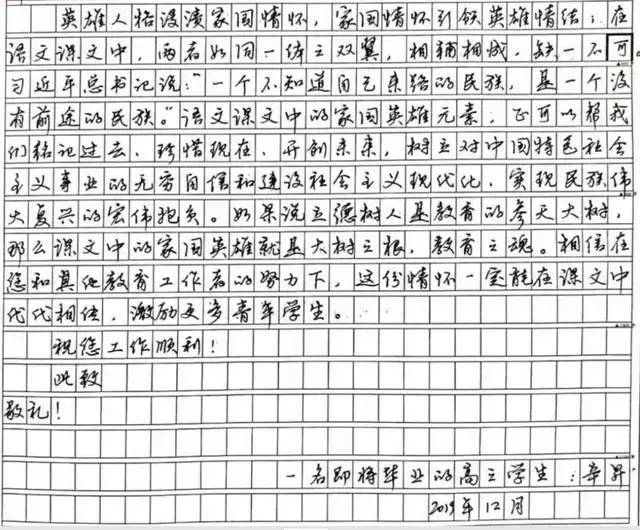 英雄人格浸渍家国情怀，家国情怀引领英雄情结；在
语文课文中，两者如同一体之双翼，相辅相成，缺一不可。
习近平总书记说：“一个不知道自己来路的民族，是一个没
有前途的民族。”语文课文中的家国英雄元素，正可以帮我
们铭记过去、珍惜现在、开创未来，树立对中国特色社会
主义事业的无穷自信和建设社会主义现代化，实现民族伟
大复兴的宏伟抱负。如果说立德树人是教育的参天大树，
那么课文中的家国英雄就是大树之根，教育之魂。相信在
您和其他教育工作者的努力下，这份情怀一定能在课文中
代代相传，激励更多青年学生。
祝您工作顺利！
此致
敬礼！
一名即将毕业的高三学生：辛昇
2019年12月